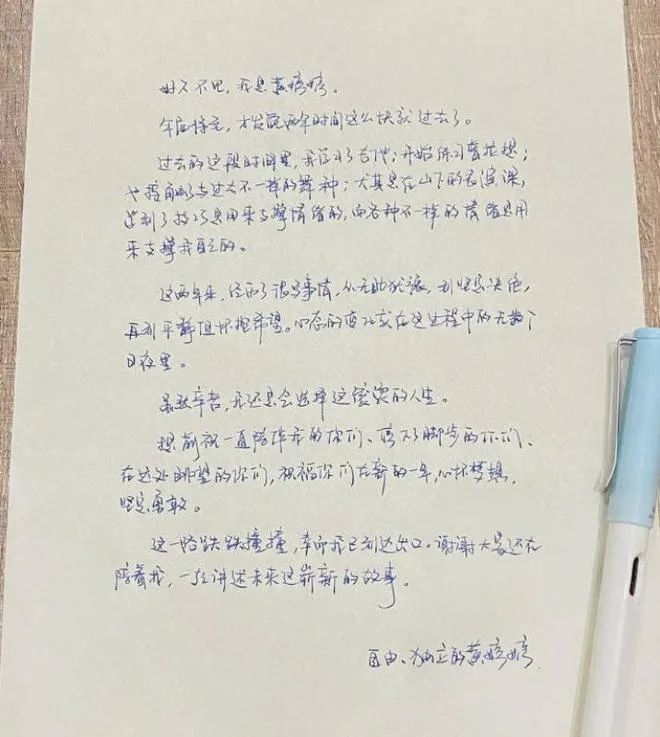 好久不见，我是黄婷婷。
年届将尽，才发觉两年时间这么快就过去了。
过去的这段时间里，我学习了吉他；开始练习着花想；
也接触了与过去不一样的舞种；尤其是在山下的表演课，
学到了技巧是用来支撑情绪的，而各种不一样的情绪是用
来支撑我自己的。
这两年来，经历了很多事情，从无助犹豫，到坚忍决绝，
再到平静但怀抱希望。心态的变化或在这过程中的无数个
日夜里。
虽然辛苦，我还是会选择这傻实的人生。
提前祝一直陪伴我的你们、停下了脚步的你们、
在远处眺望的你们，祝福你们在新的一年，心怀梦想，
坚定勇敢。
这一路跌跌撞撞，幸而我已到达出口。谢谢大家还在
陪着我，一起讲述未来这崭新的故事。
自由、独立的黄婷婷